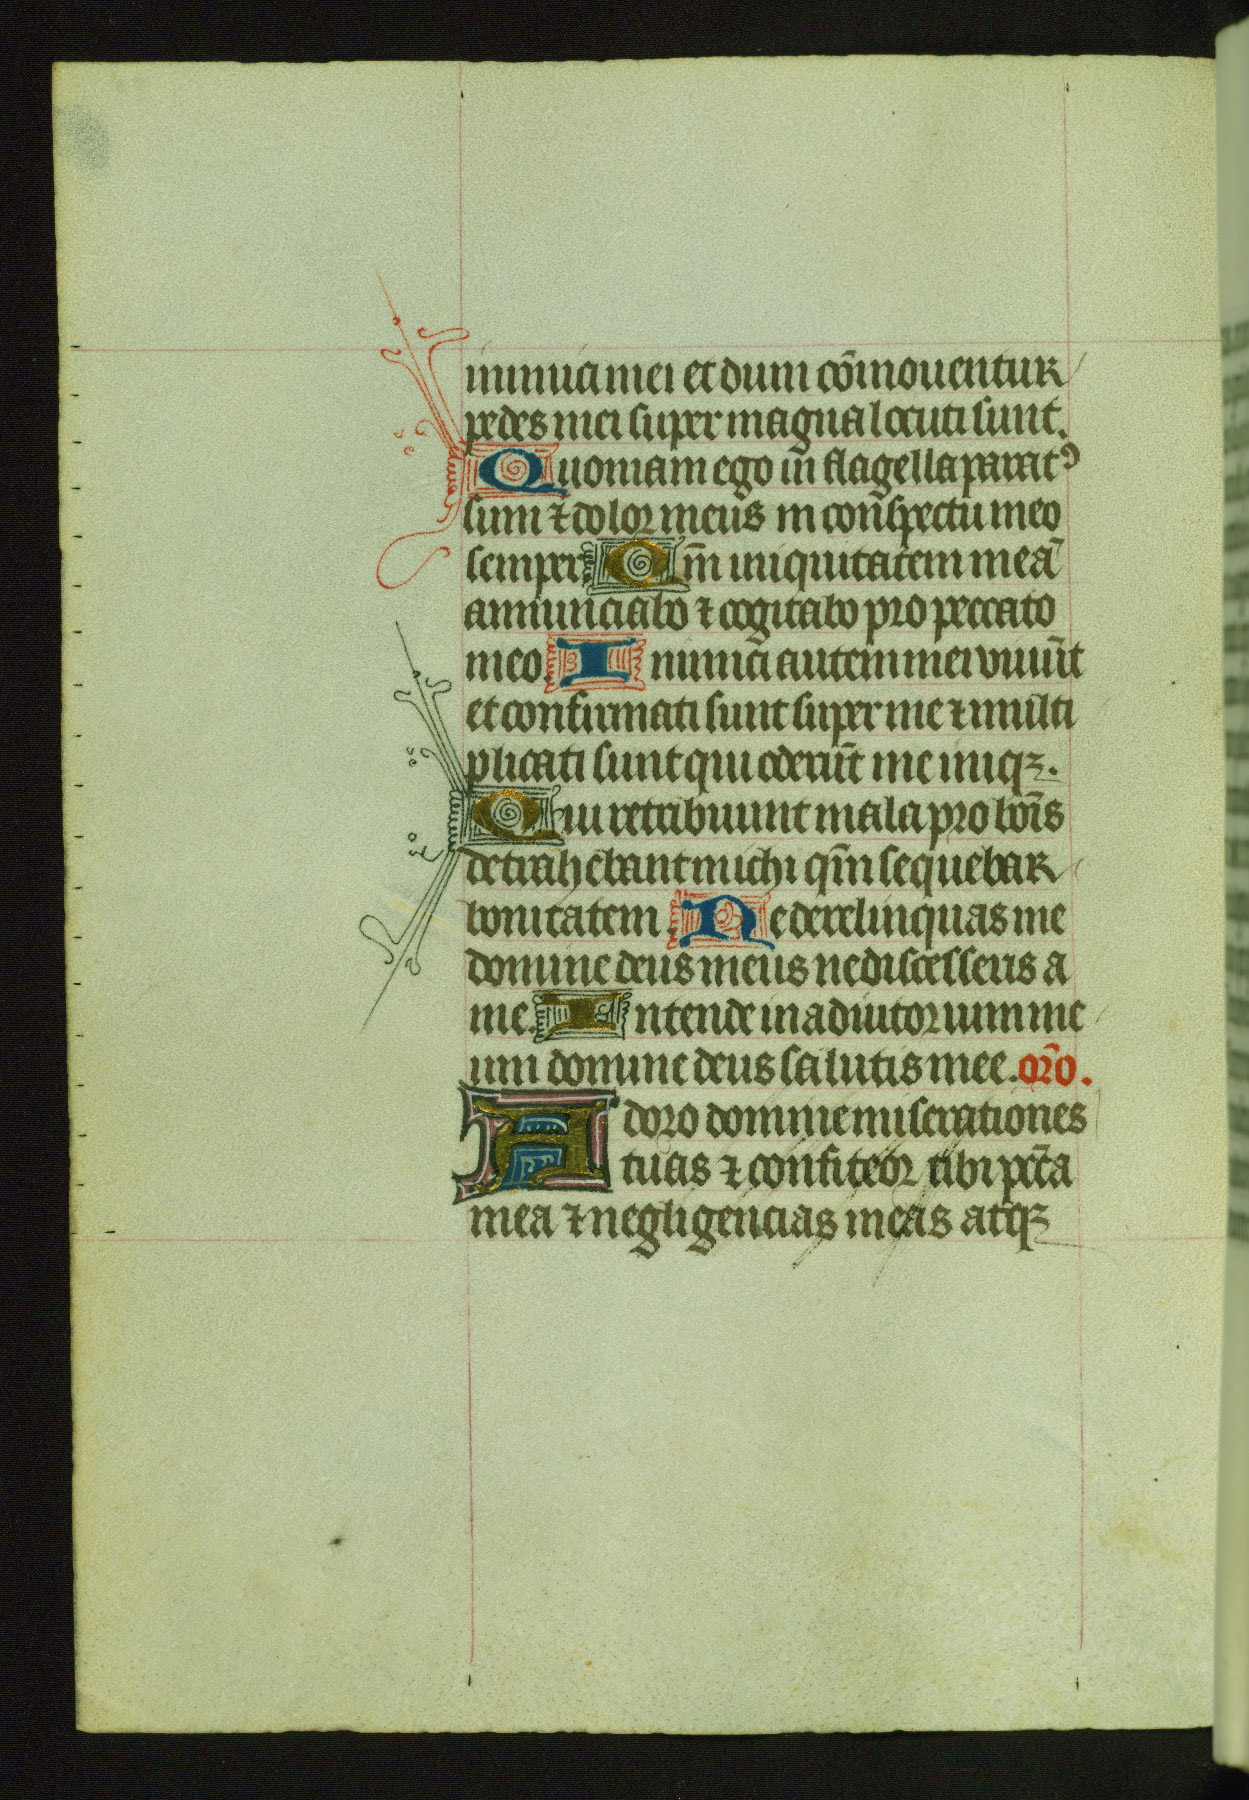 inimici mei et dum cōmouentur
pedes mei super magna locuti sunt.
Quoniam ego in flagella parat⁹
sum ⁊ dolor meus in conspectu meo
semper Qm̄ iniquitatem meā
annunciabo ⁊ cogitabo pro peccato
meo. Inimici autem mei viuūt
et confirmati sunt super me ⁊ multi
plicati sunt qui oderūt me iniqꝫ.
Qui retribuunt mala pro bōis
detrahebant michi qm̄ sequebar
bonitatem. Ne derelinquas me
domine deus meus ne discesseris a
me. Intende in adiutorium me
um domine deus salutis mee. or̄o.
Adoro domine miserationes
tuas ⁊ confiteor tibi pcc̄a
mea ⁊ negligencias meas atqꝫ